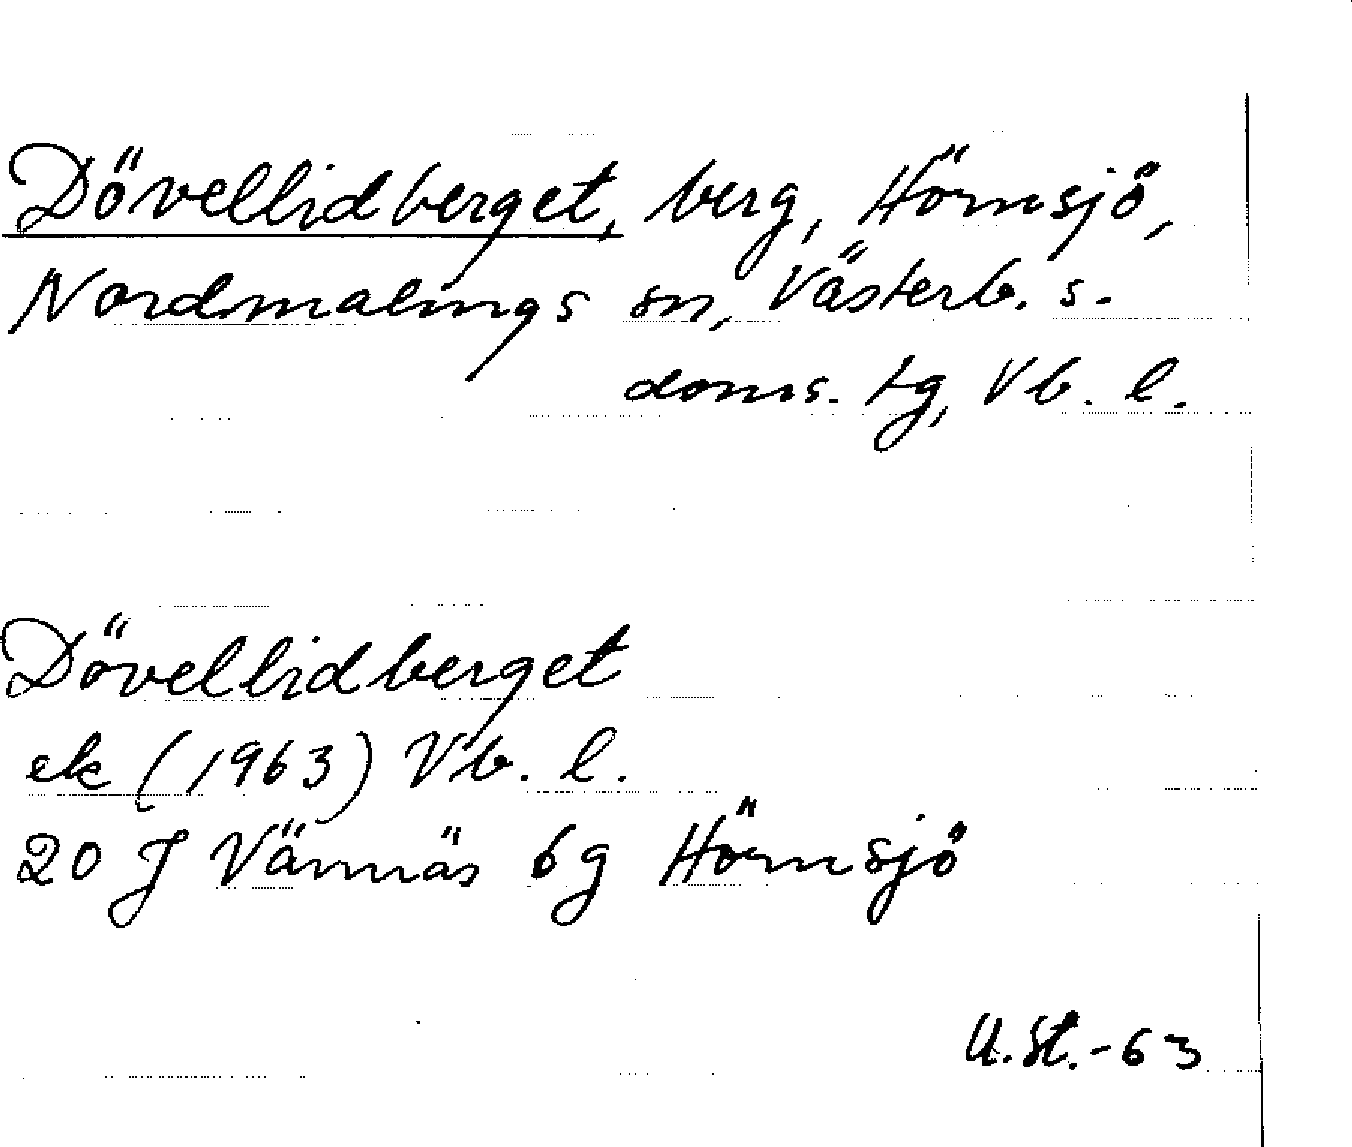 Dövellidberget, berg, Hörnsjö,
Nordmalings sn, Västerb. s.
doms. tg, Vb. l.
Dövellidberget
ek (1963) Vb. l.
20 J Vännäs 6g Hörnsjö
U.St.-63